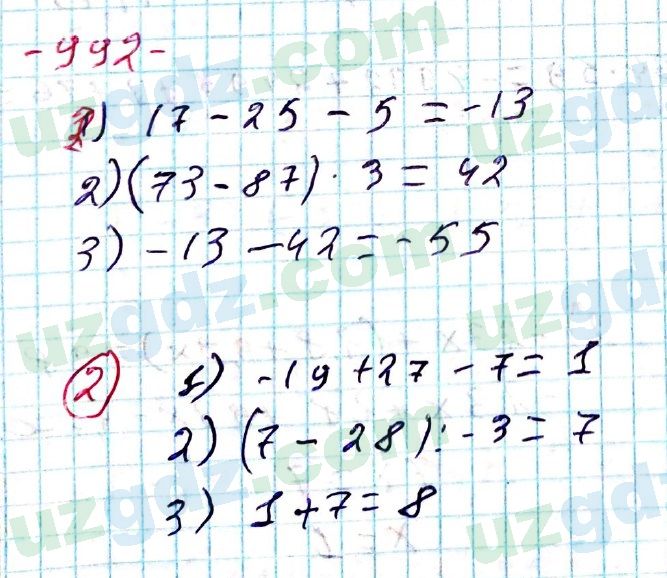 - 992 -
1) 17 - 25 - 5 = -13
2) (73 - 87) · 3 = 42
3) -13 - 42 = -55
2 1) -19 + 27 - 7 = 1
2) (7 - 28) : -3 = 7
3) 1 + 7 = 8
uzgdz.com
uzgdz.com
uzgdz.com